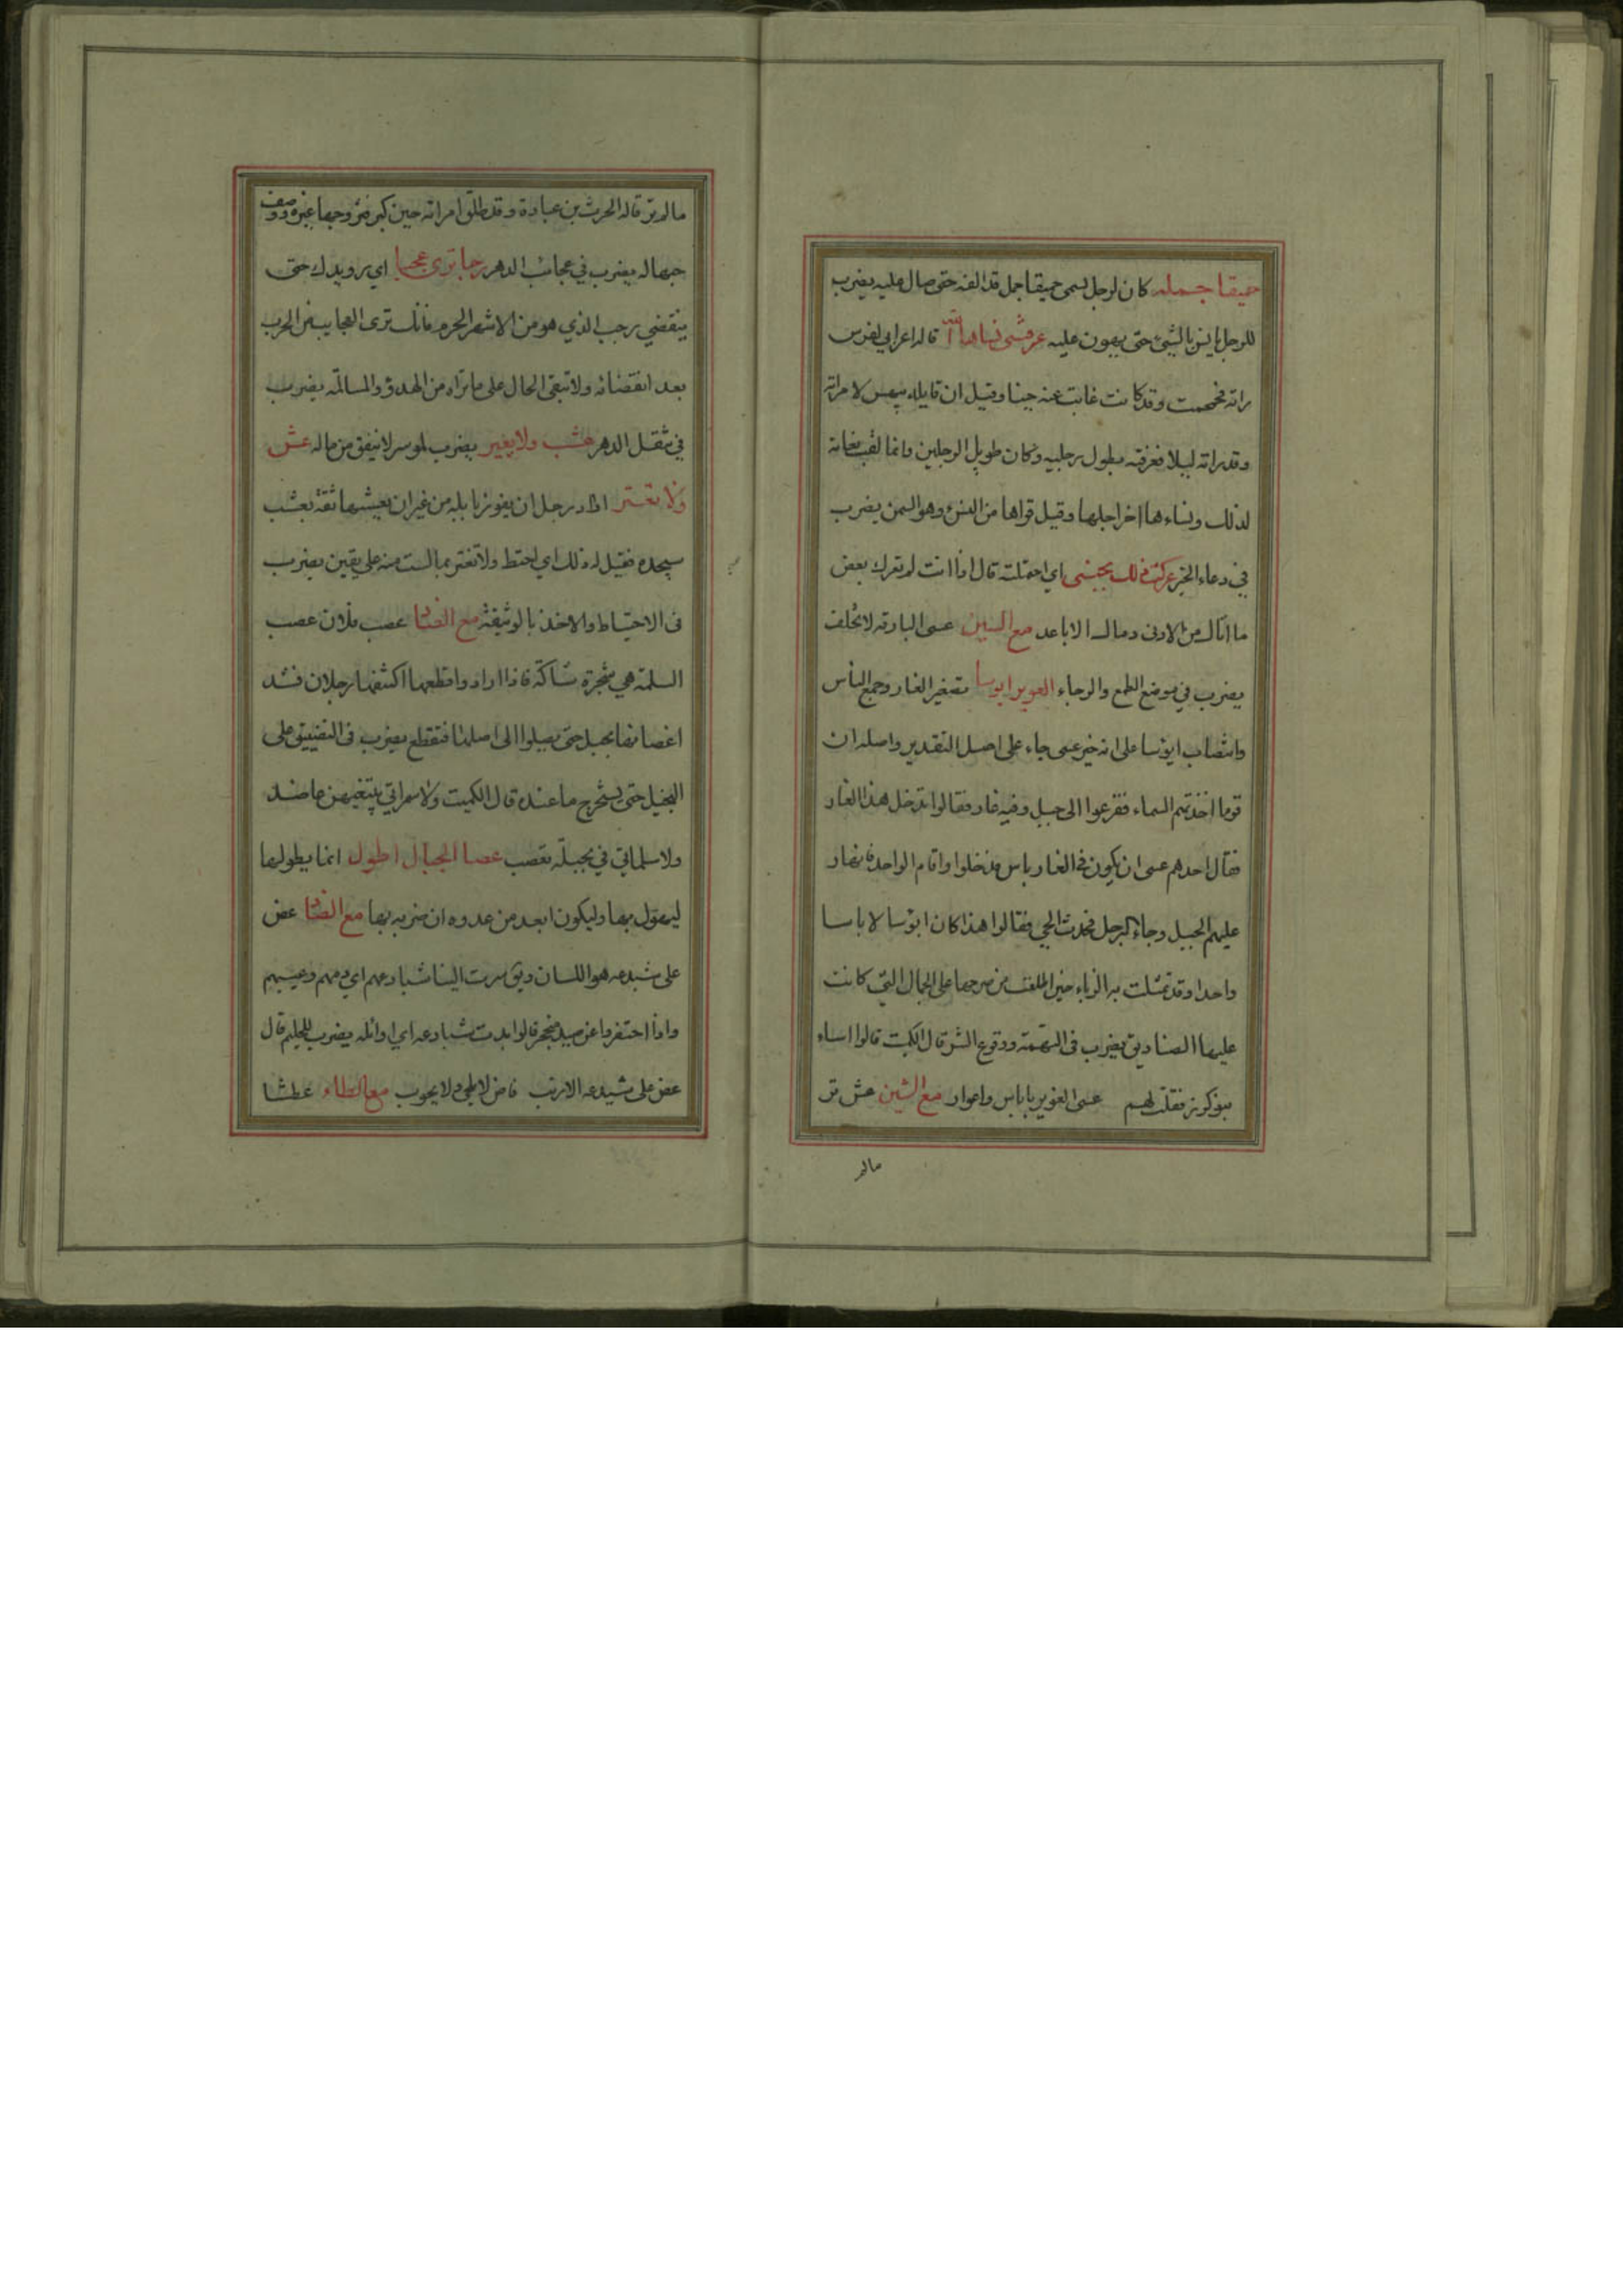 حميقا جمله كان لرجل يسمى حميقا جمل قد الفه حتى صال عليه يضرب
للرجل يانس بالشئ حتى يهون عليه عرفتني نساها الله قاله اعرابي لفرس
راته فحمحمت وقد كانت غابت عنه حينا وقيل ان قايله بيهس لامراته
وقد راته ليلا فعرفته بطول رجليه وكان طويل الرجلين وانما لقب بنعامة
لذلك ونساءها اخر اجلها وقيل قواها من النسئ وهو السمن يضرب
في دعاء الخير عركت ذلك بجنبى اي احتملته قال اذا انت لم تعرك بعض
ما انالك من الادنى دمالك الاباعد مع السين عسى البارقه لا تخلف
يضرب في موضع الطمع والرجاء الغوير ابوسا تصغير الغار وجمع الباس
وانتصاب ابوسا على انه خبر عسى جاء على اصل التقدير واصله ان
قوما اخذتهم السماء ففزعوا الى جبل وفيه غار فقالوا ندخل هذا الغار
فقال احدهم عسى ان يكون في الغار باس فدخلوا واقام الواحد فانهار
عليهم الجبل وجاء الرجل فحدث الحي فقالوا هذا كان ابوسا لا باسا
واحدا وقد تمثلت به الزباء حين اطلعت من صرحها على الجمال التي كانت
عليها الصناديق يضرب في التهمة ووقوع الشر قال الكميت قالوا اساء
بنو كرز فقلت لهم عسى الغوير باباس واغوار مع الشين عش تر
مالم
مالم تر قاله الحرث بن عبادة وقد طلق امراته حين كبر فتزوجها غيره ووصف
حبها له يضرب في عجائب الدهر رجبا ترى عجبا اي رويدك حتى
ينقضي رجب الذي هو من الاشهر الحرم فانك ترى العجايب من الحرب
بعد انقضائه ولا تبقى الحال على ما تراه من الهدؤ والمسالمة يضرب
في تنقل الدهر عشب ولا بعير يضرب لموسر لا ينفق من ماله عش
ولا تغتر اراد رجل ان يفوز بابله من غير ان يعيشها ثقة بعشب
سيجده فقيل له ذلك اي احتط ولا تغتر بما لست منه على يقين يضرب
في الاحتياط والاخذ بالوثيقة مع الصاد عصب فلان عصب
السلمة هي شجرة شاكة فاذا ارادوا قطعها اكتنفها رجلان فشد
اغصانها بحبل حتى يصلوا الى اصلها فتقطع يضرب في التضييق على
البخيل حتى يستخرج ما عنده قال الكميت ولا سمراتي يبتغيهن عاضد
ولا سلماتي في بجيلة تعصب عصا الجبان اطول انما يطولها
ليهول بها وليكون ابعد من عدوه ان ضربه بها مع الضاد عض
على شبدعه هو اللسان ويق سرت الينا شبادعهم اي ذمهم وعيبهم
واذا احتفروا عن صيد فجحر قالوا بدت شبادعه اي اوائله يضرب للحليم قال
عض على شبدعه الارنب فاض لا يلحي ولا يحوب مع الطاء عطشا